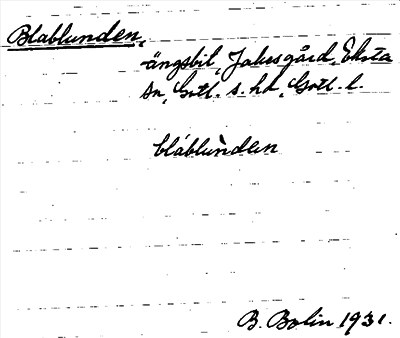 Blablunden,
ängsbit, Jakesgård, Eksta
sn, Gotl. s. hd, Gotl. l.
blàblùnden
B. Bolin 1931.